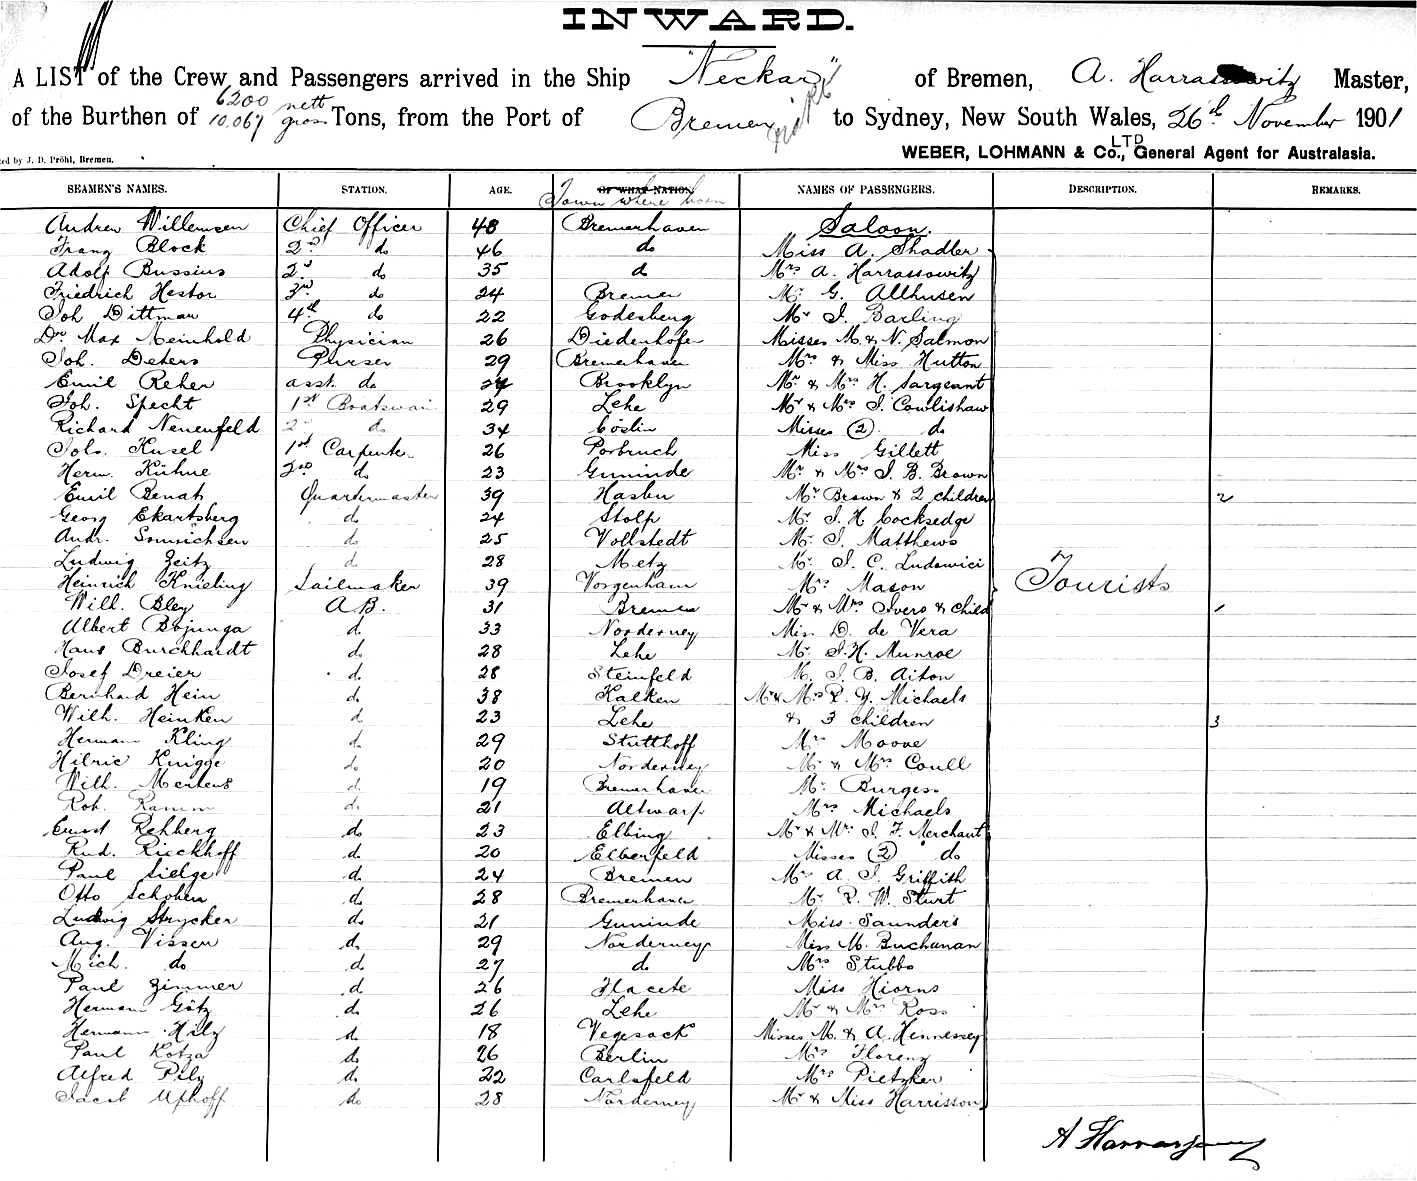 INWARD.
A LIST of the Crew and Passengers arrived in the Ship "Neckar" of Bremen, A. Harrassowitz Master,
of the Burthen of 6200 nett 10,067 gross Tons, from the Port of Bremen to Sydney, New South Wales, 26th November 1901
WEBER, LOHMANN & Co., LTD General Agent for Australasia.
ed by J. D. Pröhl, Bremen.
SEAMEN'S NAMES. STATION. AGE. OF WHAT NATION Town where born NAMES OF PASSENGERS. DESCRIPTION. REMARKS.
Andrew Willemsen Chief Officer 48 Bremerhaven Saloon.
Franz Block 2nd do 46 do Miss A. Shadler
Adolf Bussius 2nd do 35 do Mrs A. Harrassowitz
Friedrich Hestor 3rd do 24 Bremen Mr G. Allhusen
Joh Dittmar 4th do 22 Godesberg Mr J. Barling
Dr Max Meinhold Physician 26 Diedenhofen Misses M. & N. Salmon
Joh. Deters Purser 29 Bremerhaven Mrs & Miss Hutton
Emil Reher asst. do 24 Brooklyn Mr & Mrs H. Sargeant
Joh. Specht 1st Boatswain 29 Lehe Mr & Mrs J. Cowlishaw
Richard Neuenfeld 2nd do 34 Cöslin Misses (2) do
Johs. Kusel 1st Carpenter 26 Porbruch Miss Gillett
Herm. Kühne 2nd do 23 Gminde Mr & Mrs J. B. Brown
Emil Benat Quartermaster 39 Haslen Mr Brown & 2 children 2
Georg Ekartsberg do 24 Stolp Mr J. H. Cocksedge
Andr. Sonnichsen do 25 Vollstedt Mr J. Matthews
Ludwig Zeitz do 28 Metz Mr J. C. Ludowici
Heinrich Knieling Sailmaker 39 Vorgenham Mrs Mason Tourists
Will. Bley A.B. 31 Bremen Mr & Mrs Ivers & Child 1
Albert Bojunga do 33 Norderney Miss D. de Vera
Hans Burckhardt do 28 Lehe Mr J. H. Munroe
Josef Dreier do 28 Steinfeld M. J. B. Aiton
Bernhard Hein do 38 Kalken Mr & Mrs P. Y. Michaels
Wilh. Heinken do 23 Lehe & 3 children 3
Hermann Kling do 29 Stutthoff Mrs Moove
Hilric Knigge do 20 Norderney Mr & Mrs Coull
Wilh. Mertens do 19 Bremerhaven Mr Burgess
Rob. Ramm do 21 Altwarp Mrs Michaels
Ernst Rehberg do 23 Elbing Mr & Mrs J. F. Merchant
Rud. Rieckhoff do 20 Elberfeld Misses (2) do
Paul Sielge do 24 Bremen Mr A. J. Griffith
Otto Schoben do 28 Bremerhaven Mr P. W. Sturt
Ludwig Strycker do 21 Gminde Miss Saunders
Aug. Vissen do 29 Norderney Miss M. Buchanan
Mich. do do 27 do Mrs Stubbs
Paul Zimmer do 26 Flacete Miss Hiorns
Hermann Götz do 26 Lehe Mr & Mrs Ross
Hermann Hilz do 18 Vegesack Misses M. & A. Hennessey
Paul Kotza do 26 Berlin Mrs Florenz
Alfred Pilz do 22 Carlsfeld Mrs Pietzker
Jacob Uphoff do 28 Norderney Mr & Miss Harrisson
A Harrassowitz